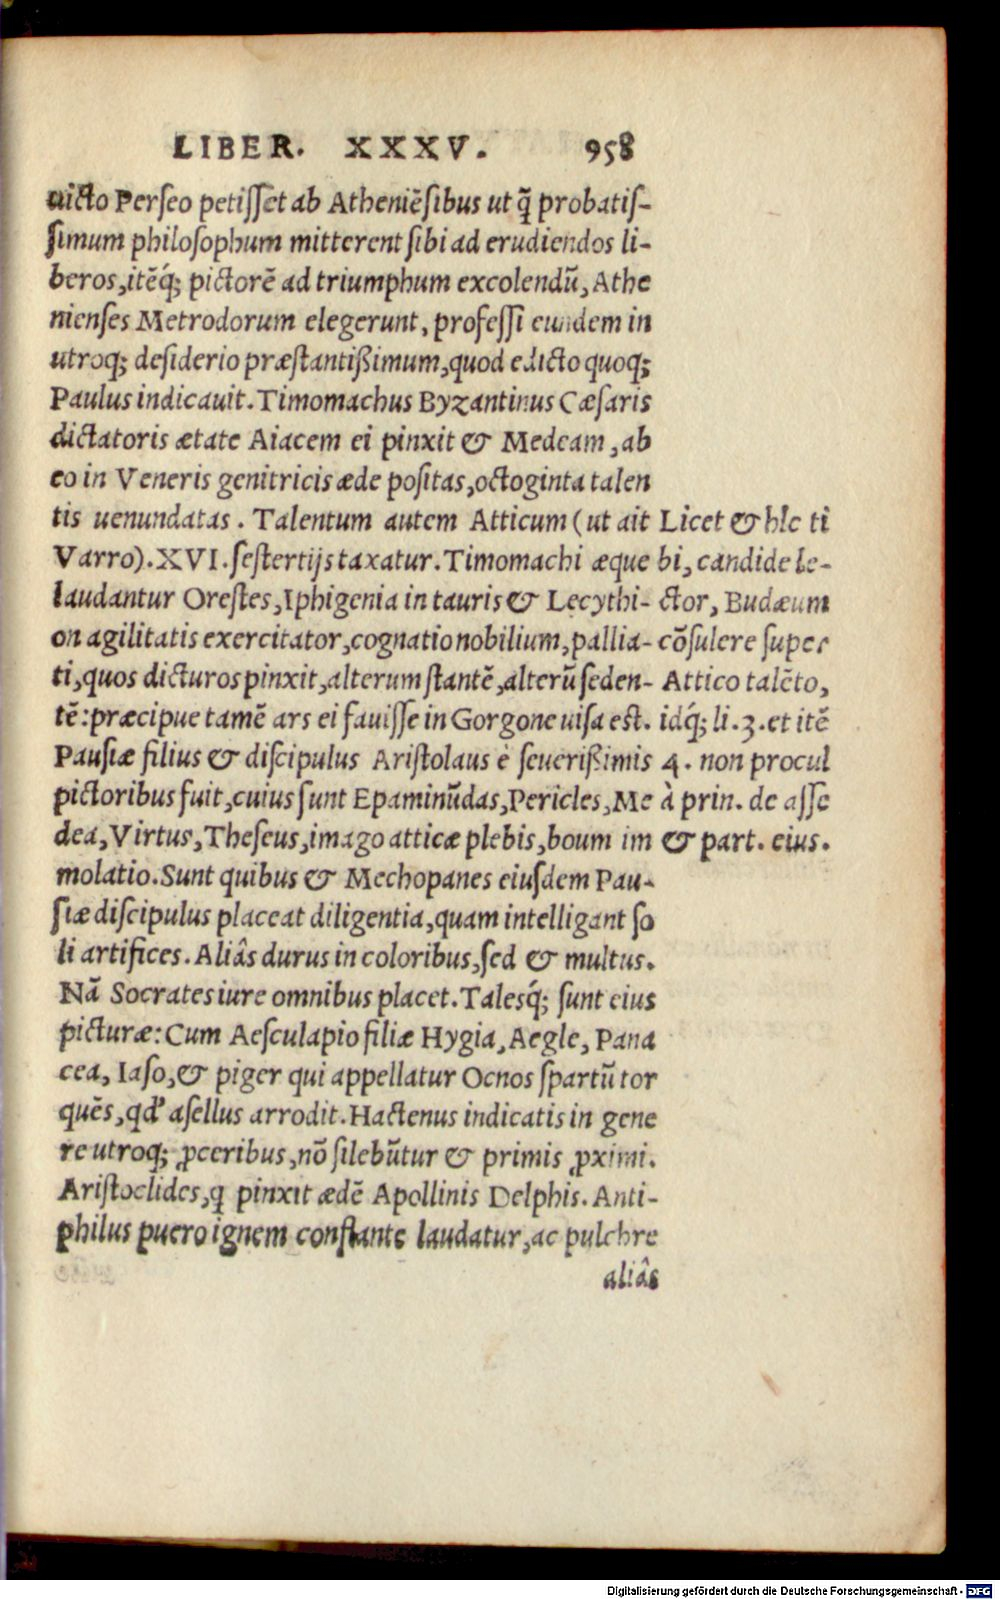 LIBER. XXXV. 958
uicto Perseo petisset ab Atheniẽsibus ut q̃ probatis-
simum philosophum mitterent sibi ad erudiendos li-
beros, itẽq́; pictorẽ ad triumphum excolendũ, Athe
nienses Metrodorum elegerunt, professi eundem in
utroq; desiderio præstantißimum, quod edicto quoq;
Paulus indicauit. Timomachus Byzantinus Cæsaris
dictatoris ætate Aiacem ei pinxit & Medeam, ab
eo in Veneris genitricis æde positas, octoginta talen
tis uenundatas. Talentum autem Atticum (ut ait
Varro). XVI. sestertijs taxatur. Timomachi æque
laudantur Orestes, Iphigenia in tauris & Lecythi-
on agilitatis exercitator, cognatio nobilium, pallia-
ti, quos dicturos pinxit, alterum stantẽ, alterũ seden-
tẽ: præcipue tamẽ ars ei fauisse in Gorgone uisa est.
Pausiæ filius & discipulus Aristolaus è seuerißimis
pictoribus fuit, cuius sunt Epaminũdas, Pericles, Me
dea, Virtus, Theseus, imago atticæ plebis, boum im
molatio. Sunt quibus & Mechopanes eiusdem Pau-
siæ discipulus placeat diligentia, quam intelligant so
li artifices. Aliâs durus in coloribus, sed & multus.
Nã Socrates iure omnibus placet. Talesq́; sunt eius
picturæ: Cum Aesculapio filiæ Hygia, Aegle, Pana
cea, Iaso, & piger qui appellatur Ocnos spartũ tor
quẽs, qđ asellus arrodit. Hactenus indicatis in gene
re utroq; ꝓceribus, nõ silebũtur & primis ꝓximi.
Aristoclides, q pinxit ædẽ Apollinis Delphis. Anti-
philus puero ignem conflante laudatur, ac pulchre
aliâs
Licet & hîc ti
bi, candide le-
ctor, Budæum
cõsulere super
Attico talẽto,
idq́; li. 3. et itẽ
4. non procul
à prin. de asse
& part. eius.
Digitalisierung gefördert durch die Deutsche Forschungsgemeinschaft - DFG